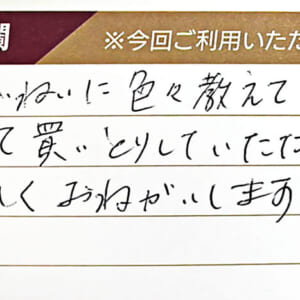 欄 ※今回ご利用いただ
いねいに色々教えて
て買いとりしていただ
しくおねがいします